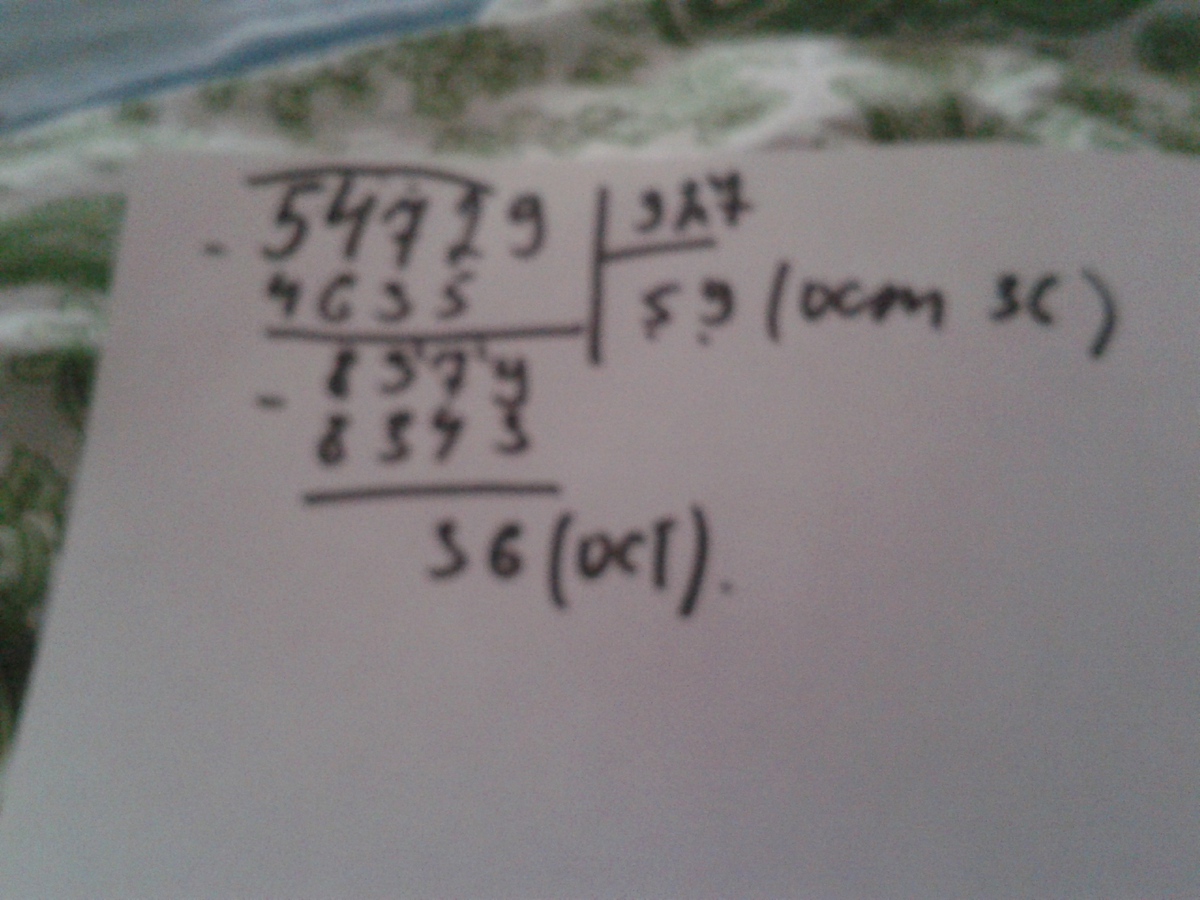 - 54729 | 927
4635 59 (ост 36)
- 8379
8343
36 (ост).